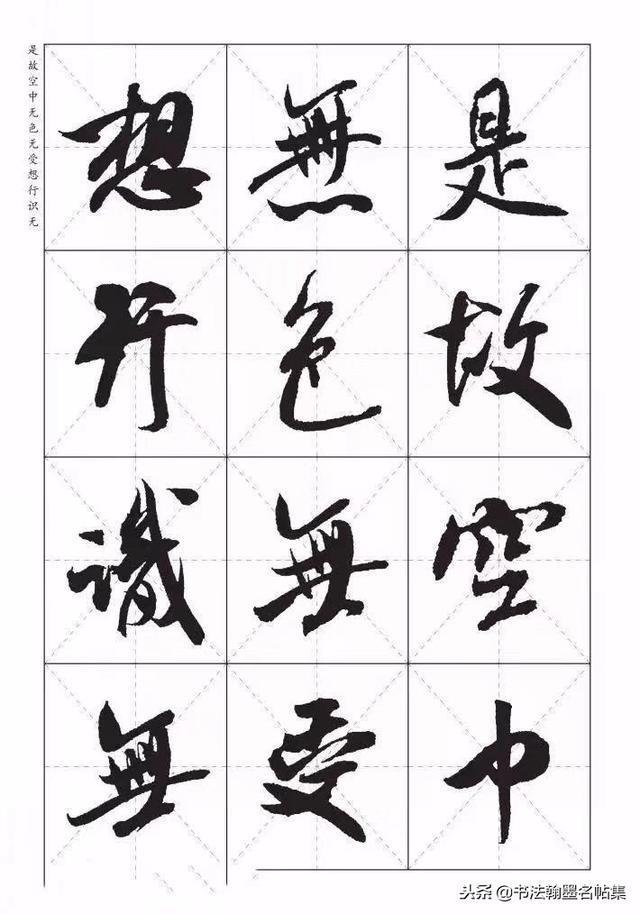 是故空中
無色無受
想行識無
是故空中无色无受想行识无
头条 @书法翰墨名帖集